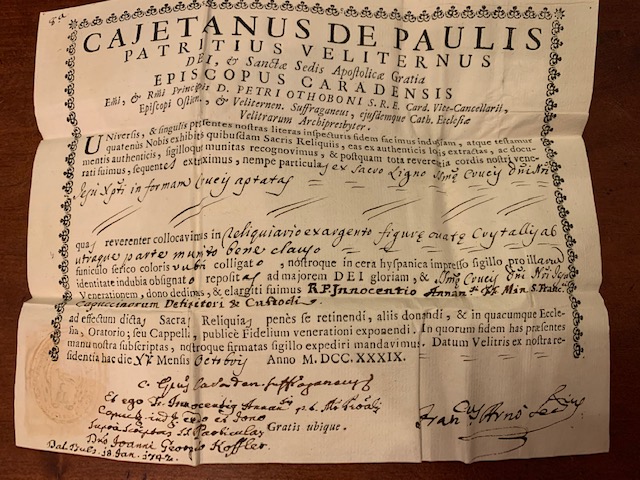 CAJETANUS DE PAULIS
PATRITIUS VELITERNUS
DEI, & Sanctæ Sedis Apostolicæ Gratia
EPISCOPUS CARADENSIS
Emi, & Rmi Principis D. PETRI OTHOBONI S. R. E. Card. Vice-Cancellarii,
Episcopi Ostien., & Veliternen. Suffraganeus, ejusdemque Cath. Ecclesiæ
Velitrarum Archipresbyter.
Universis, & singulis præsentes nostras literas inspecturis fidem facimus indubiam, atque testamur
quatenus Nobis exhibitis quibusdam Sacris Reliquiis, eas ex authenticis locis extractas, ac docu-
mentis authenticis, sigilloque munitas recognovimus, & postquam tota reverentia cordis nostri vene-
rati fuimus, sequentes extraximus, nempe particulas ex Sacro Ligno Ssmę Crucis Dni Nri
Jesu Xpti in formam Crucis aptatas
quas reverenter collocavimus in Reliquiario ex argento figurę ovatę Crystallis ab
utraque parte munito bene clauso
funiculo serico coloris rubri colligato, nostroque in cera hyspanica impresso sigillo pro illarum
identitate indubia obsignato repositas ad majorem DEI gloriam, & Ssmę Crucis Dni Nri
Venerationem, dono dedimus, & elargiti fuimus R.P. Innocentio Min. S. Franc.
Capuccinorum Definitori & Custodi
ad effectum dictas Sacras Reliquias penès se retinendi, aliis donandi, & in quacumque Eccle-
sia, Oratorio; seu Cappell, publicè Fidelium venerationi exponendi. In quorum fidem has præsentes
manu nostra subscriptas, nostroque firmatas sigillo expediri mandavimus. Datum Velitris ex nostra re-
sidentia hac die XX Mensis Octobris Anno M. DCC. XXXIX.
Suffraganeus
Et ego Fr. Innocentius
dono
Suprascriptas SS. Particulas Gratis ubique.
Dno Joanni Georgio Koffler.
18 Jan. 1742.